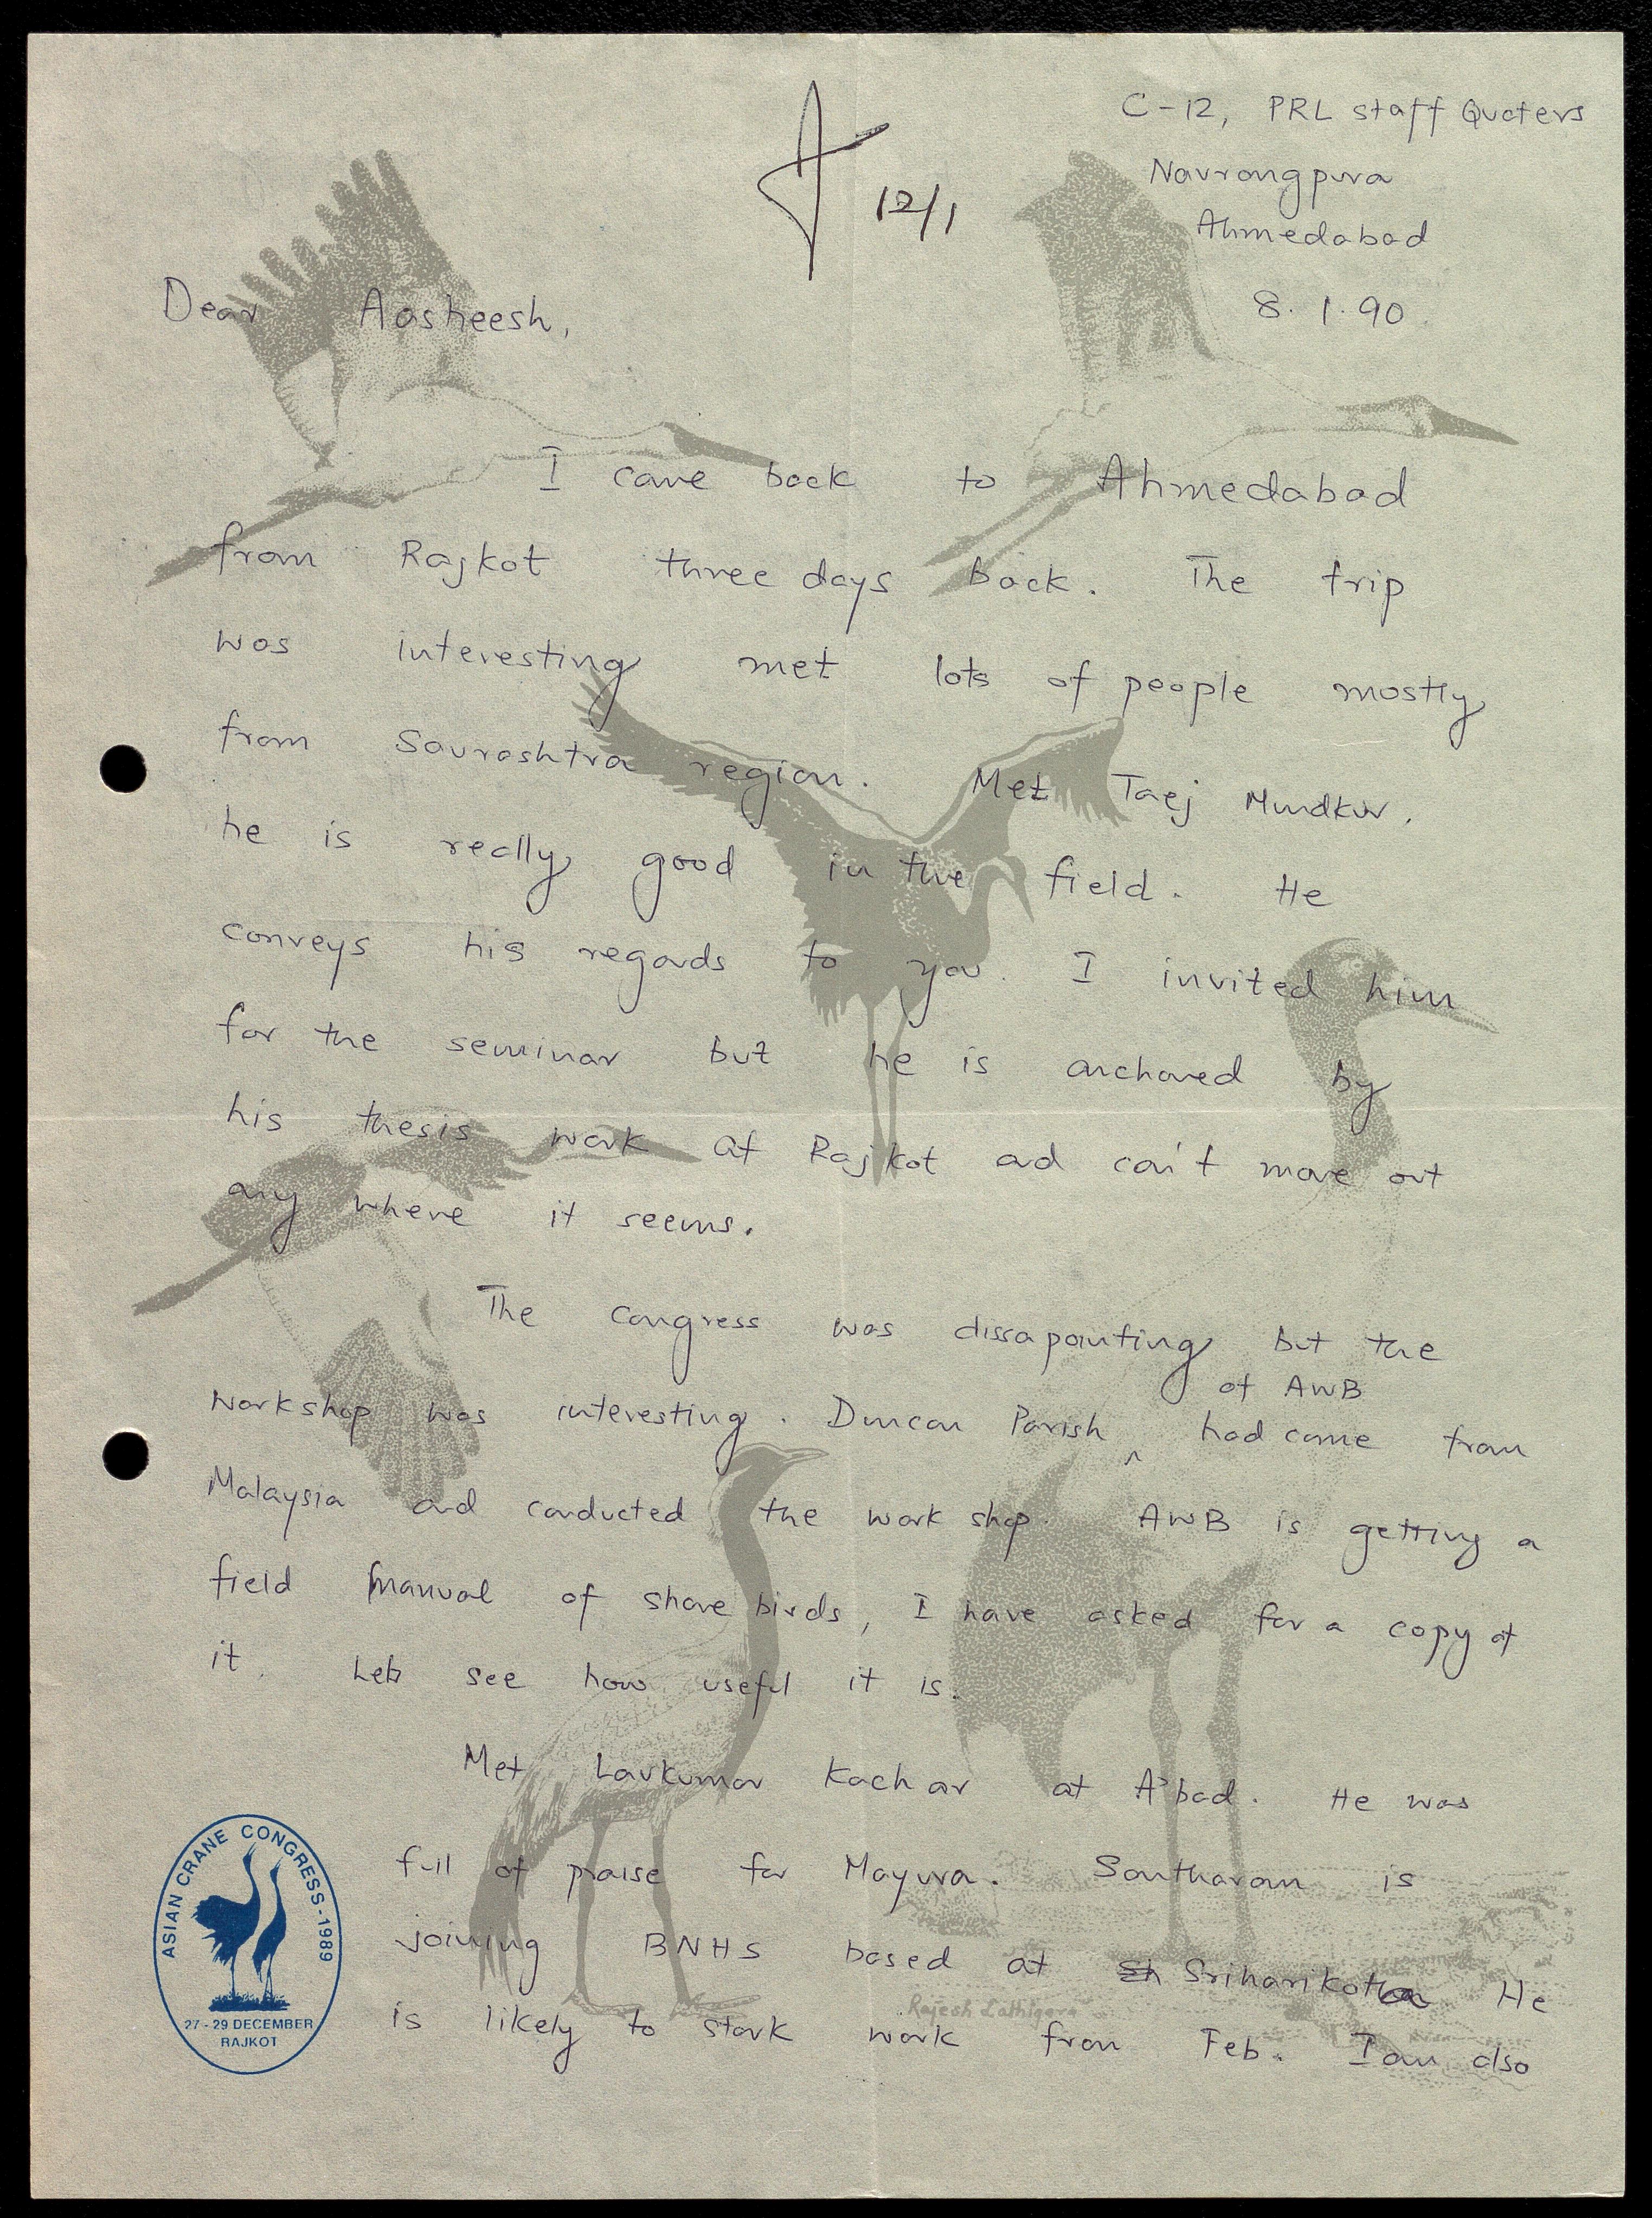 C-12, PRL staff Quoters
Navrongpura
Ahmedabad
8.1.90
12/1
Dear Aasheesh,
I came back to Ahmedabad
from Rajkot three days back. The trip
was interesting met lots of people mostly
from Saurashtra region. Met Taej Mundkur.
he is really good in the field. He
conveys his regards to you. I invited him
for the seminar but he is anchored by
his thesis work at Rajkot and can't move out
any where it seems.
The congress was dissapointing but the
of AWB
workshop was interesting. Duncan Parish ^ had come from
Malaysia and conducted the work shop. AWB is getting a
field manual of shore birds, I have asked for a copy of
it. Lets see how useful it is.
Met Lavkumar Kachar at A'bad. He was
full of praise for Mayura. Santharam is
joining BNHS based at Sh Sriharikotta He
is likely to stark work from Feb. I am also
Rajesh Lathigara
ASIAN CRANE CONGRESS-1989
27-29 DECEMBER
RAJKOT